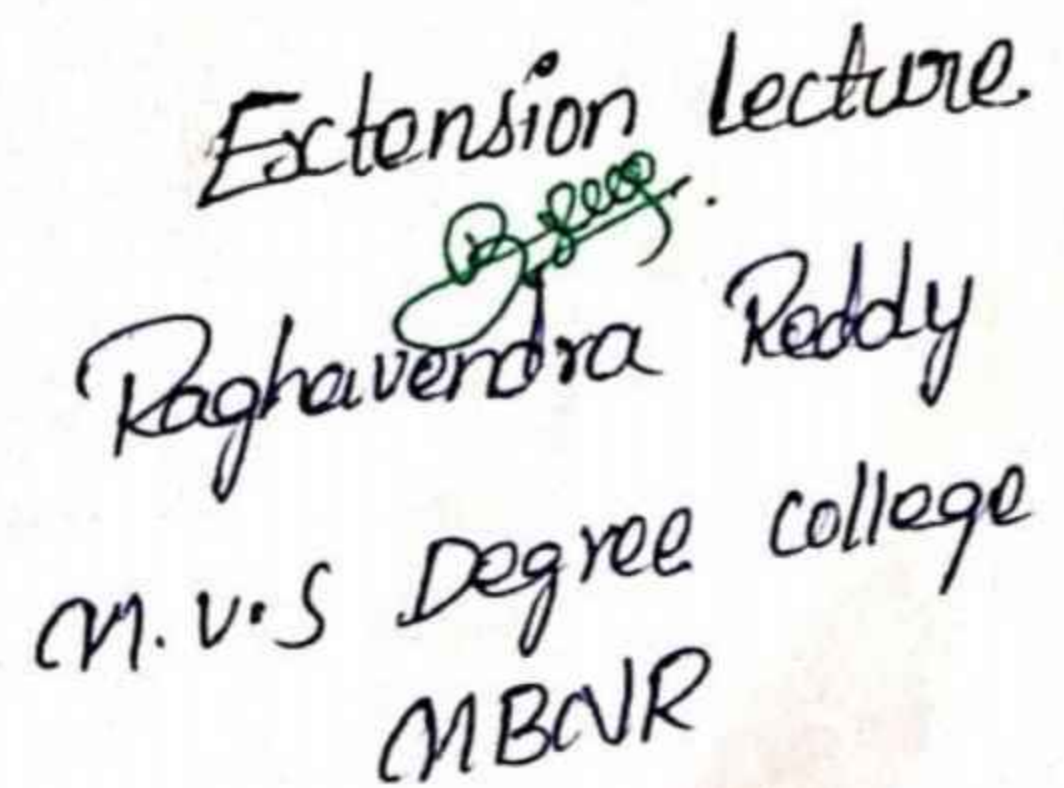 Extension lecture
Raghavendra Reddy
M.V.S Degree college
MBNR